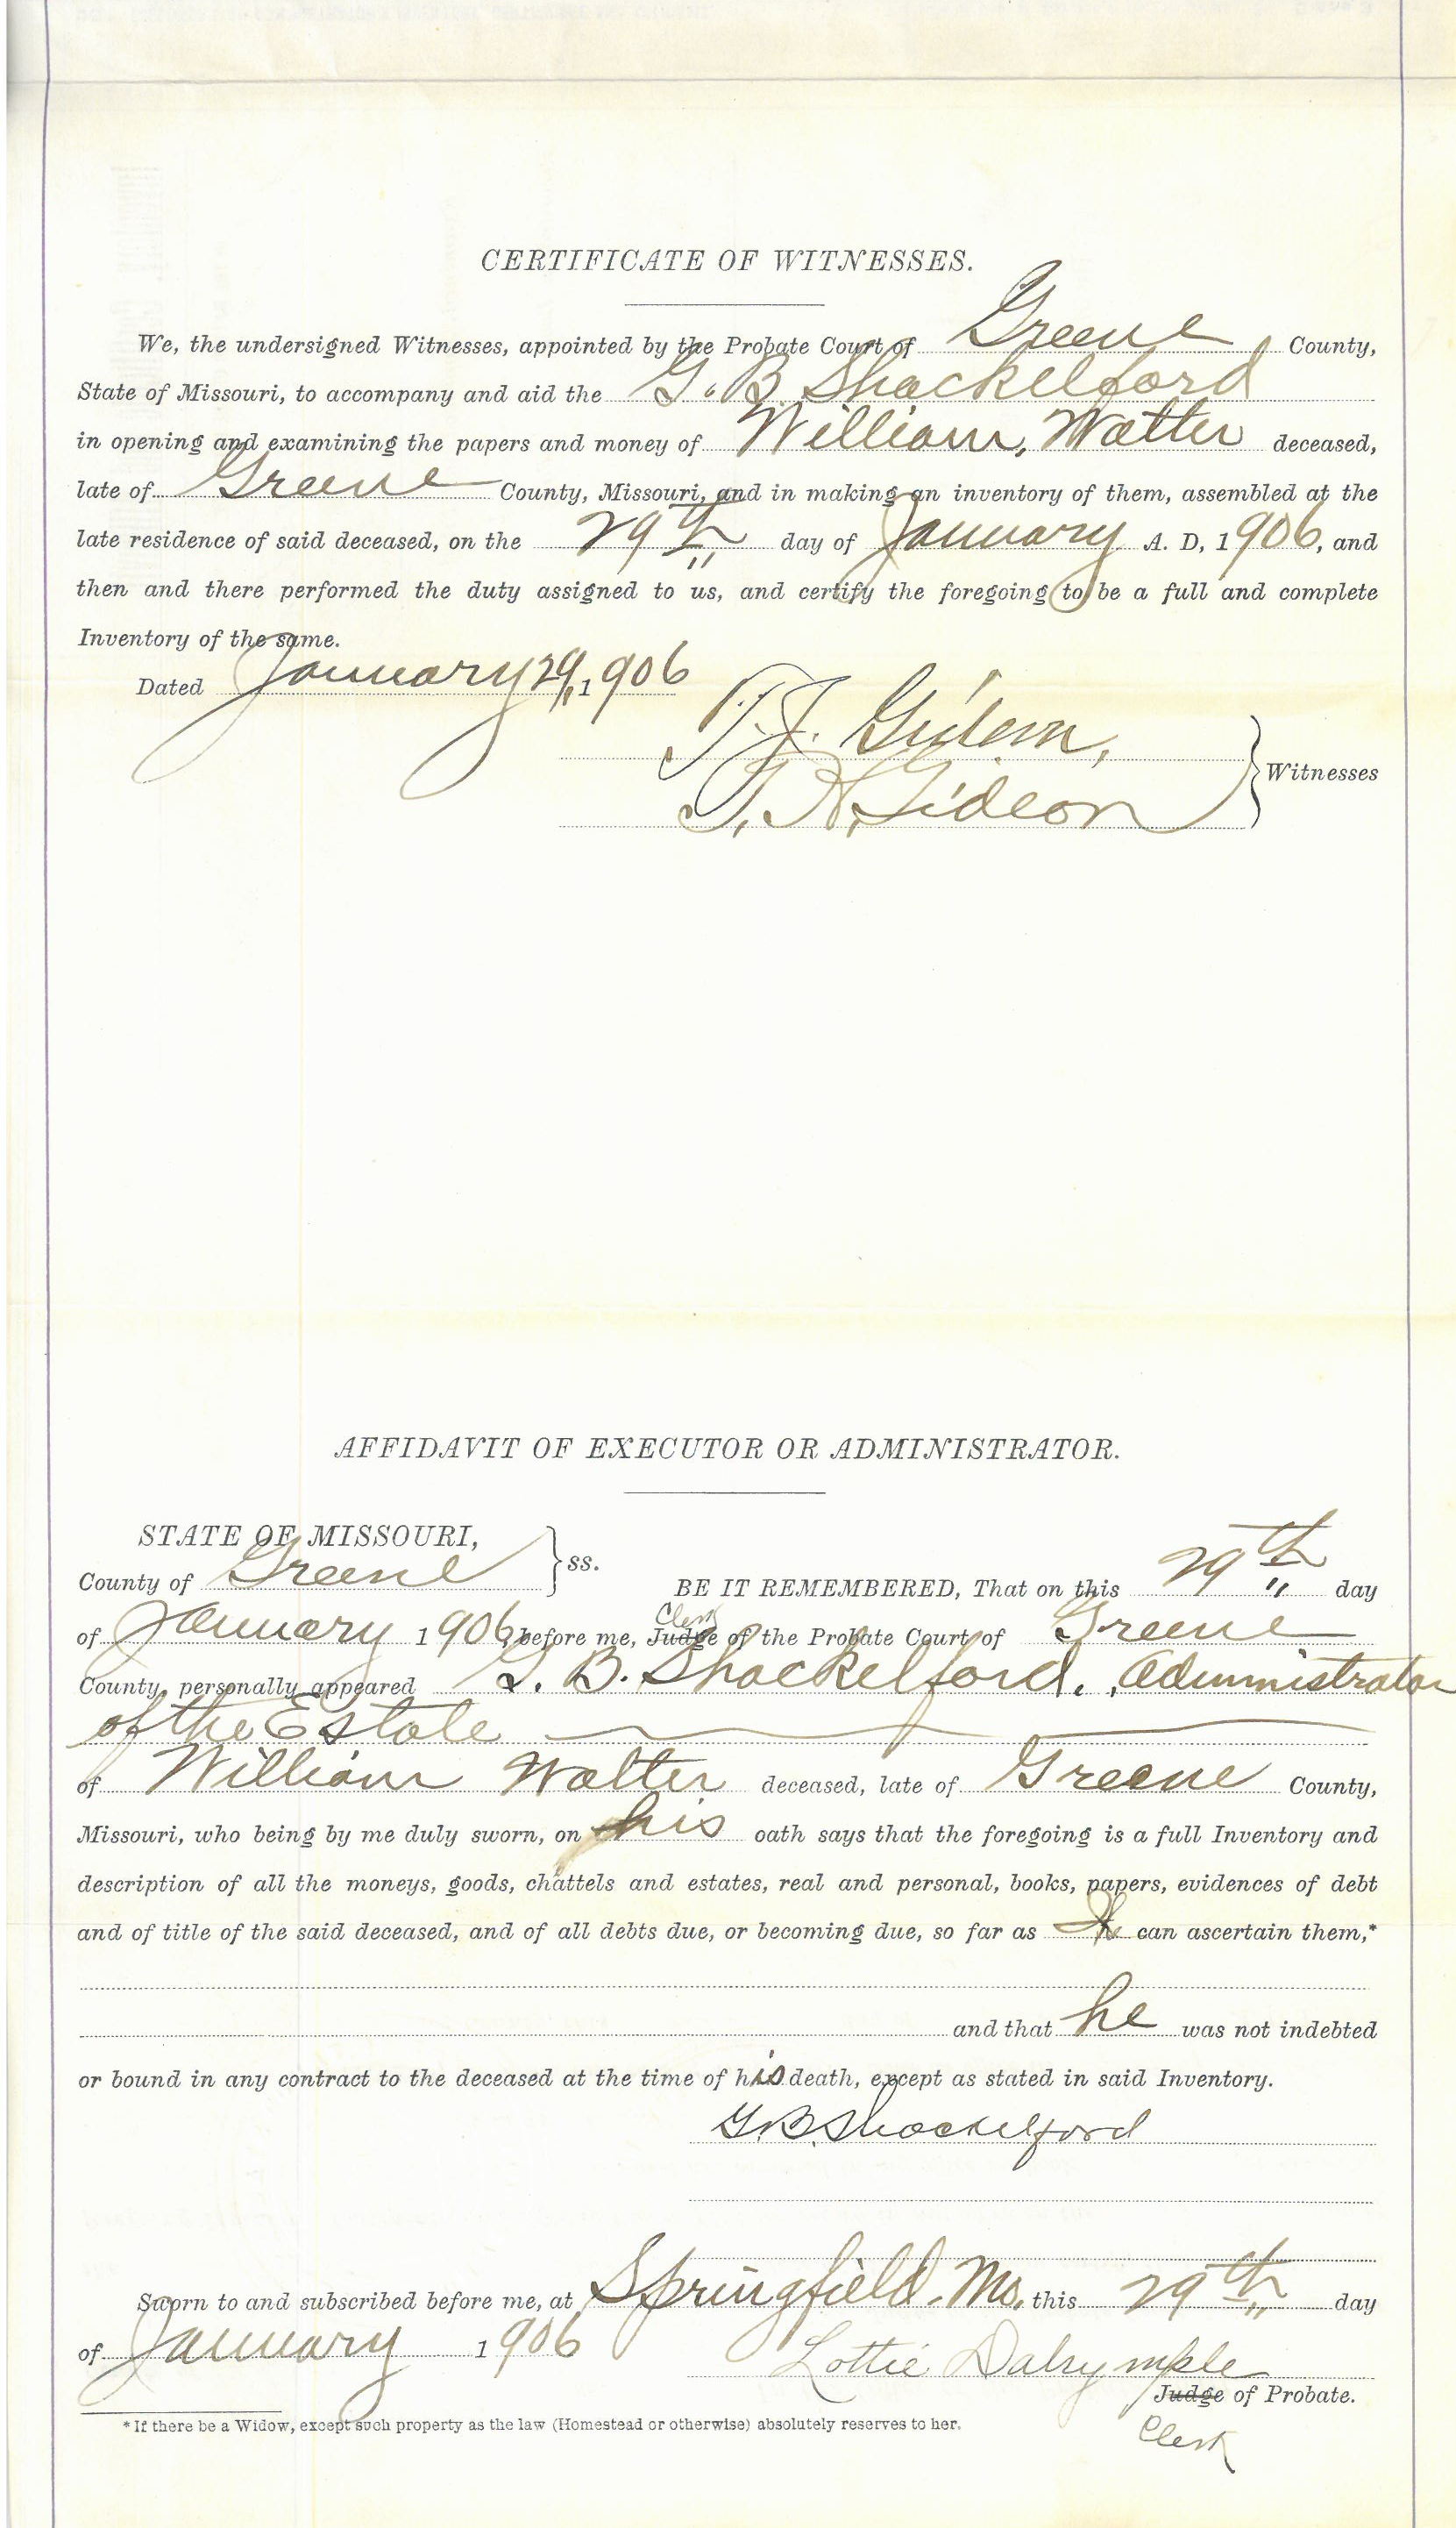 CERTIFICATE OF WITNESSES.
We, the undersigned Witnesses, appointed by the Probate Court of Greene County,
State of Missouri, to accompany and aid the G. B. Shackelford
in opening and examining the papers and money of William, Walter deceased,
late of Greene County, Missouri, and in making an inventory of them, assembled at the
late residence of said deceased, on the 29th day of January A. D, 1906, and
then and there performed the duty assigned to us, and certify the foregoing to be a full and complete
Inventory of the same.
Dated January 29, 1906
T. J. Gideon,
T. H. Gideon
Witnesses
AFFIDAVIT OF EXECUTOR OR ADMINISTRATOR.
STATE OF MISSOURI,
County of Greene } ss.
BE IT REMEMBERED, That on this 29th day
Clerk
of January 1906, before me, Judge of the Probate Court of Greene
County, personally appeared G. B. Shackelford, Administrator
of the Estate
of William Walter deceased, late of Greene County,
Missouri, who being by me duly sworn, on his oath says that the foregoing is a full Inventory and
description of all the moneys, goods, chattels and estates, real and personal, books, papers, evidences of debt
and of title of the said deceased, and of all debts due, or becoming due, so far as can ascertain them,*
and that he was not indebted
or bound in any contract to the deceased at the time of his death, except as stated in said Inventory.
G.B. Shackelford
Sworn to and subscribed before me, at Springfield, Mo. this 29th day
of January 1906
Lottie Dalrymple
Judge of Probate.
Clerk
*If there be a Widow, except such property as the law (Homestead or otherwise) absolutely reserves to her.